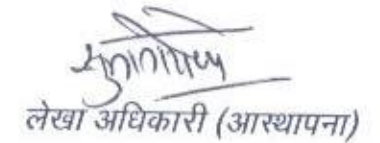 लेखा अधिकारी (आस्थापना)